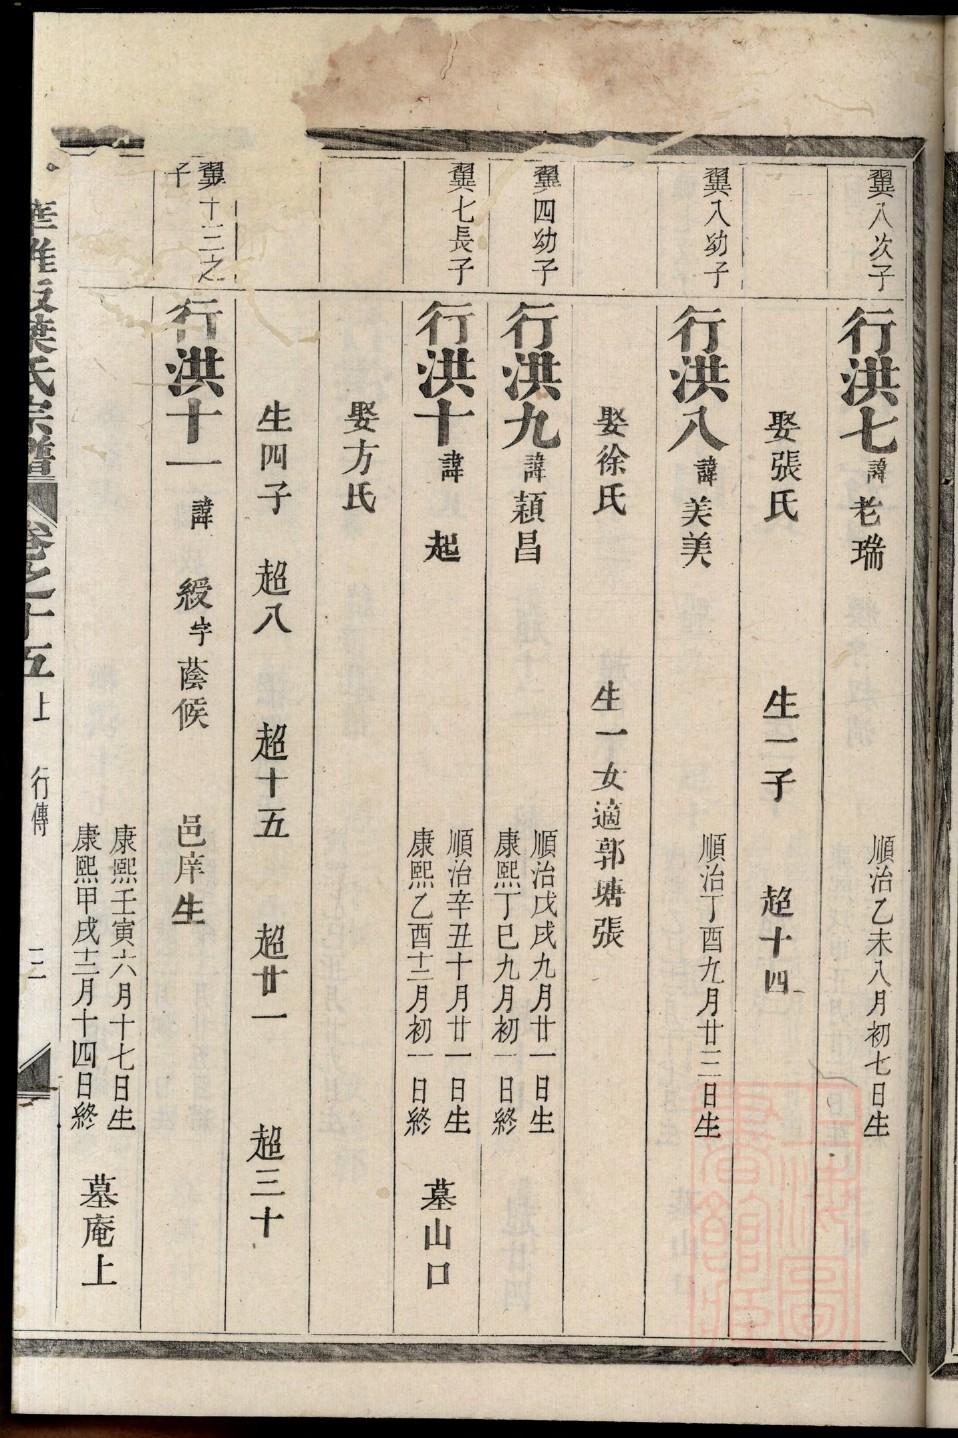 翼八次子
行洪七 諱 老瑞 順治乙未八月初七日生
娶張氏 生一子 超十四
翼八幼子
行洪八 諱 美美 順治丁酉九月廿三日生
娶徐氏 生一女適郭塘張
翼四幼子
行洪九 諱 穎昌 順治戊戌九月廿一日生
康熙丁巳九月初一日終
翼七長子
行洪十 諱 起 順治辛丑十月廿一日生
康熙乙酉十二月初一日終 墓山口
娶方氏
生四子 超八 超十五 超廿一 超三十
翼十三之
子
行洪十一 諱 綬 字 蔭候 邑庠生 康熙壬寅六月十七日生
康熙甲戌十二月十四日終 墓庵上
葉氏宗譜 卷之十五 上 行傳 三